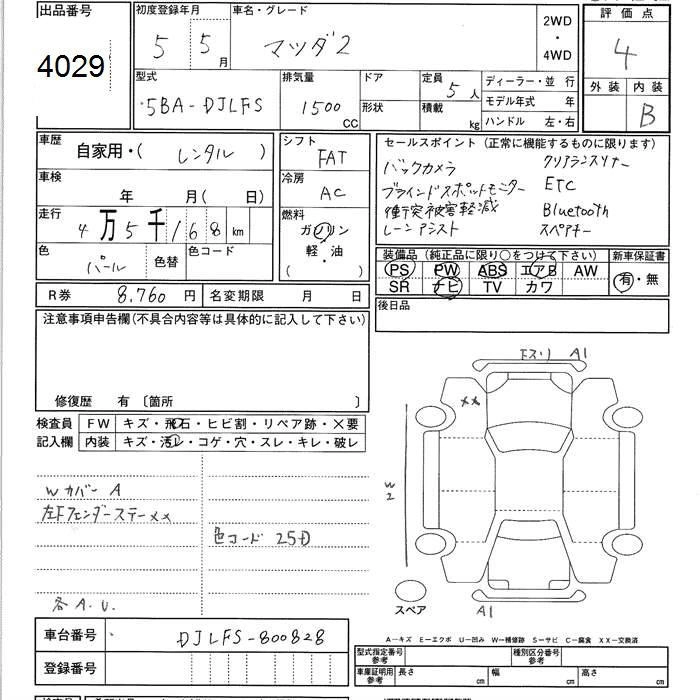 出品番号 初度登録年月 車名・グレード 2WD・4WD 評価点
4029 5 5月 マツダ2 4
型式 排気量 ドア 定員 5人 ディーラー・並 行 外装 内装
5BA-DJLFS 1500 CC 形状 積載 kg モデル年式 年 B
ハンドル 左・右
車歴 自家用・( レンタル ) シフト FAT セールスポイント(正常に機能するものに限ります)
車検 年 月( 日) 冷房 AC バックカメラ クリアランスソナー
ブラインドスポットモニター ETC
走行 4万5千168km 燃料 ガソリン 衝突被害軽減 Bluetooth
軽・油 レーンアシスト スペアキー
( ・ )
色 パール 色替 色コード 装備品(純正品に限り○をつけて下さい) 新車保証書
PS PW ABS エアB AW 有・無
SR ナビ TV カワ
R券 8,760円 名変期限 月 日 後日品
注意事項申告欄(不具合内容等は具体的に記入して下さい)
修復歴 有 〔箇所 〕
検査員 FW キズ・飛石・ヒビ割・リペア跡・×要
記入欄 内装 キズ・汚レ・コゲ・穴・スレ・キレ・破レ
下スリ A1
××
W2
Wカバー A
左Fフェンダーステー××
色コード 25D
各A.U.
スペア
A1
A-キズ E-エクボ U-凹み W-補修跡 S-サビ C-腐食 XX-交換済
車台番号 DJLFS-800828
登録番号
型式指定番号 参考 種別区分番号 参考
車庫証明用 参考 長さ cm 幅 cm 高さ cm